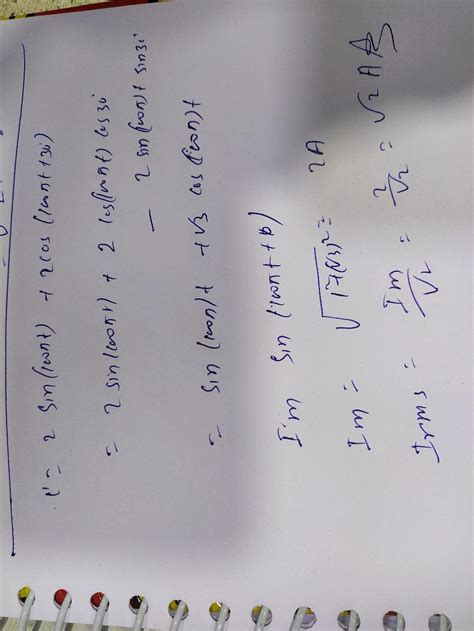 i = 2 sin(100πt) + 2cos(100πt+30)
= 2 sin(100πt) + 2 cos(100πt) cos30
− 2 sin(100πt) sin30
= sin(100π)t + √3 cos(100π)t
Im sin (100πt+φ)
Im = √1²+(√3)² = 2A
Irms = Im/√2 = 2/√2 = √2 A